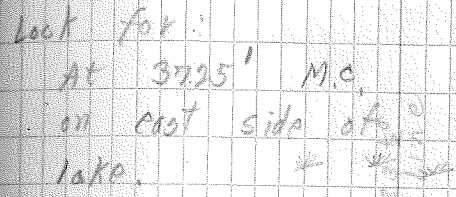 Look for:
At 3725' M.C.
on east side of
lake.